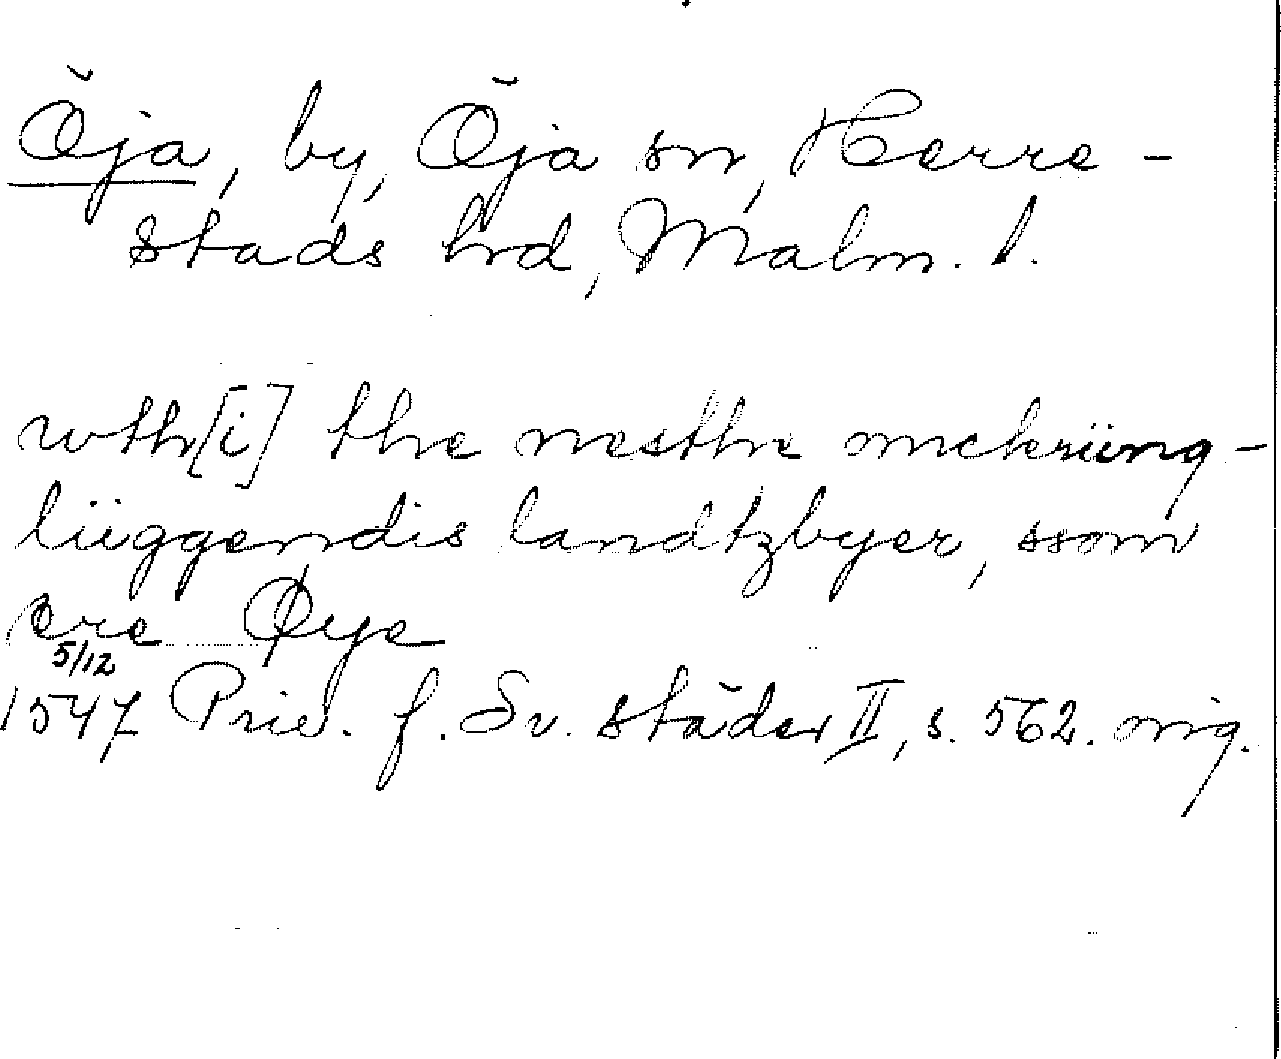 Öja, by, Öja sn, Herre-
stads hrd, Malm. l.
wth[i] the nesthe omckriing-
liiggendis landtzbyer, ssom
ere Øye
5/12
1547 Priv. f. Sv. städer II, s. 562. orig.